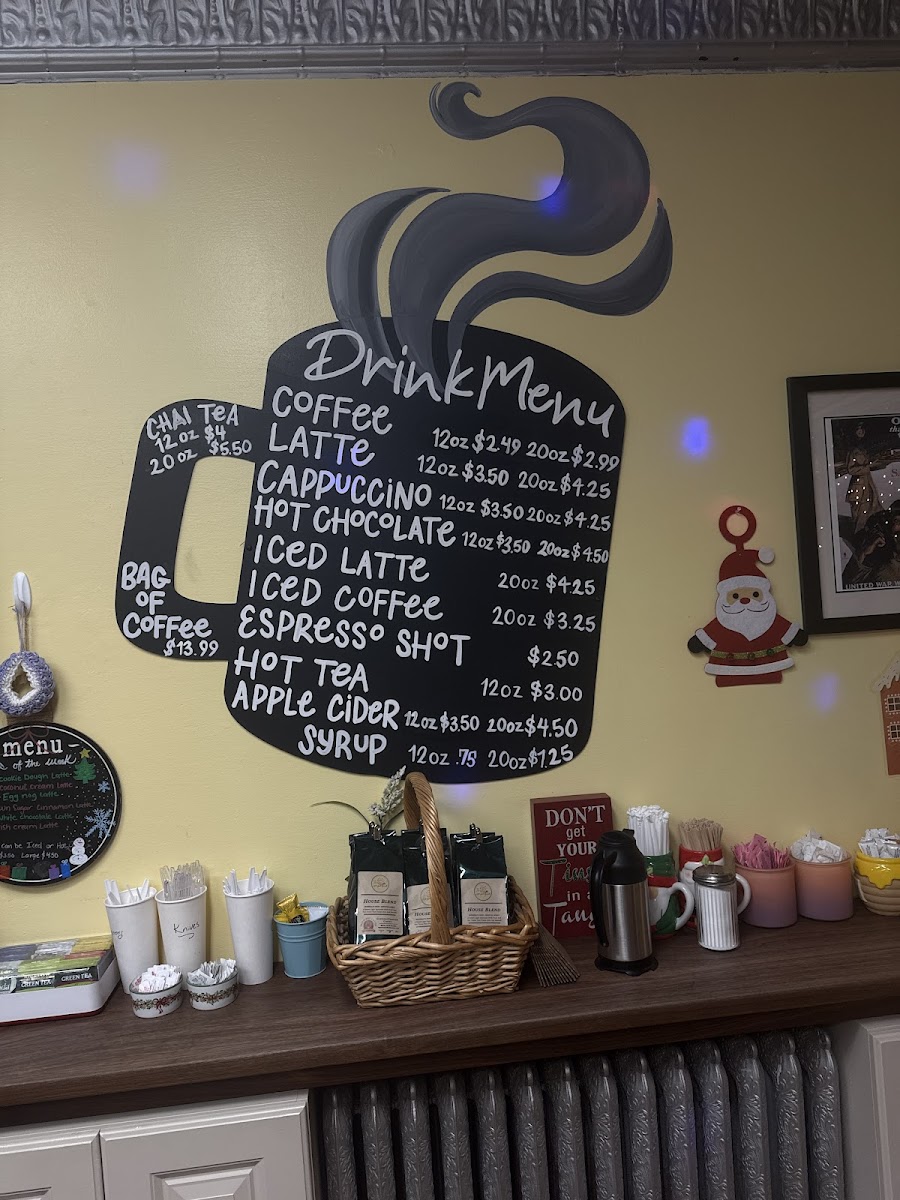 Drink Menu
COFFEE 12oz $2.49 20oz $2.99
LATTE 12oz $3.50 20oz $4.25
CAPPUCCINO 12oz $3.50 20oz $4.25
HOT CHOCOLATE 12oz $3.50 20oz $4.50
ICED LATTE 20oz $4.25
ICED COFFEE 20oz $3.25
ESPRESSO SHOT $2.50
HOT TEA 12oz $3.00
APPLE CIDER 12oz $3.50 20oz $4.50
SYRUP 12oz .75 20oz $1.25
CHAI TEA
12 oz $4
20 oz $5.50
BAG
OF
COFFEE
$13.99
menu
of the week
Cookie Dough Latte
Coconut Cream Latte
Egg nog Latte
Sugar Cinnamon Latte
White chocolate Latte
Cream Latte
Can be Iced or Hot
Large $4.50
DON'T
get
YOUR
in a
HOUSE BLEND
HOUSE BLEND
Knives
GREEN TEA
GREEN TEA
UNITED WAR